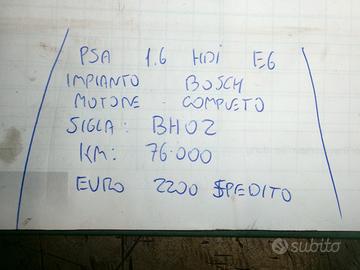 PSA 1.6 HDi E6
IMPIANTO BOSCH
MOTORE COMPLETO
SIGLA: BH02
KM: 76.000
EURO 2200 SPEDITO
subito